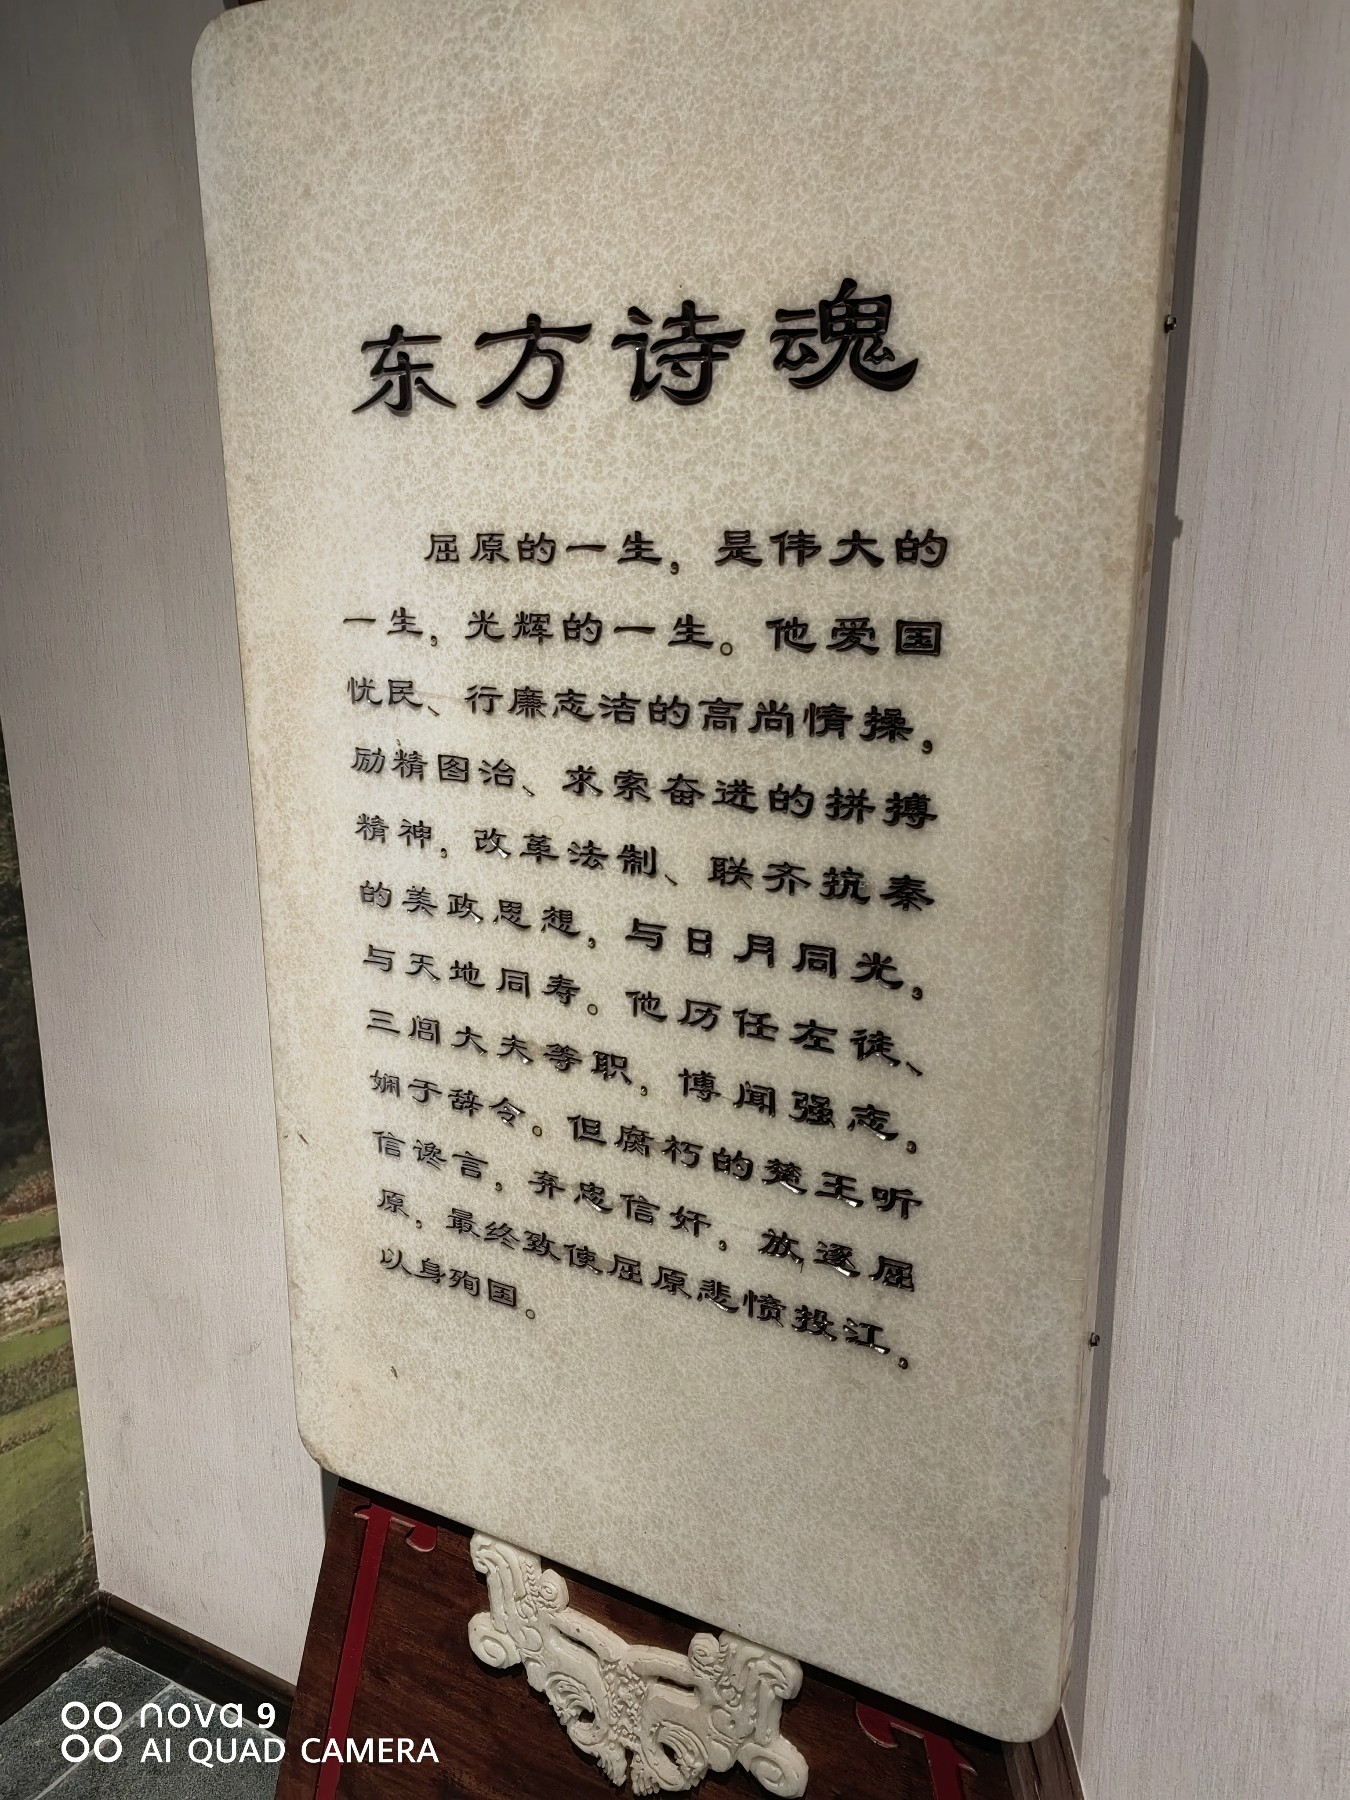 东方诗魂
屈原的一生，是伟大的
一生，光辉的一生。他爱国
忧民、行廉志洁的高尚情操，
励精图治、求索奋进的拼搏
精神，改革法制、联齐抗秦
的美政思想，与日月同光，
与天地同寿。他历任左徒、
三闾大夫等职，博闻强志，
娴于辞令。但腐朽的楚王听
信谗言，弃忠信奸，放逐屈
原，最终致使屈原悲愤投江，
以身殉国。
nova 9
AI QUAD CAMERA